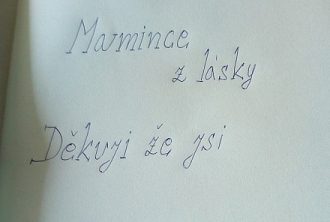 Mamince
z lásky
Děkuji že jsi